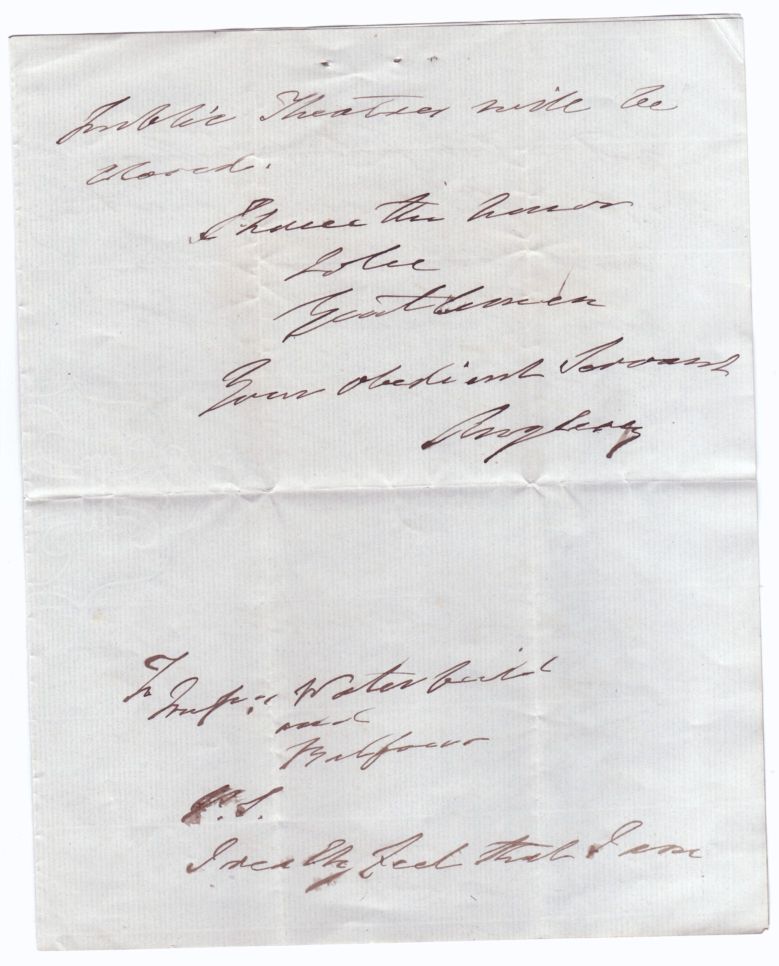 Public Theatres will be
closed.
I have the honor
to be
Gentlemen
Your obedient Servant
Anglesey
To
Messrs. Waterfield
and
Balfour
P.S.
I really feel that I am